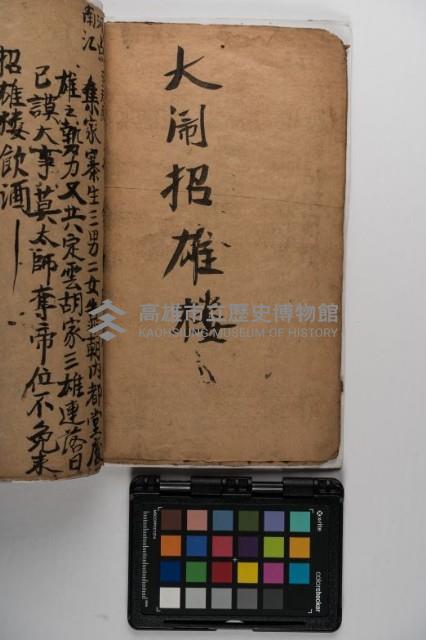 大鬧招雄楼
南江
秦家寨生三男二女生並朝內都堂廣
雄之勢力又共定雲胡家三雄連落日
已謨大事莫太師奪帝位不免来
招雄楼飲酒
高雄市立歷史博物館
KAOHSIUNG MUSEUM OF HISTORY
x-rite
colorchecker